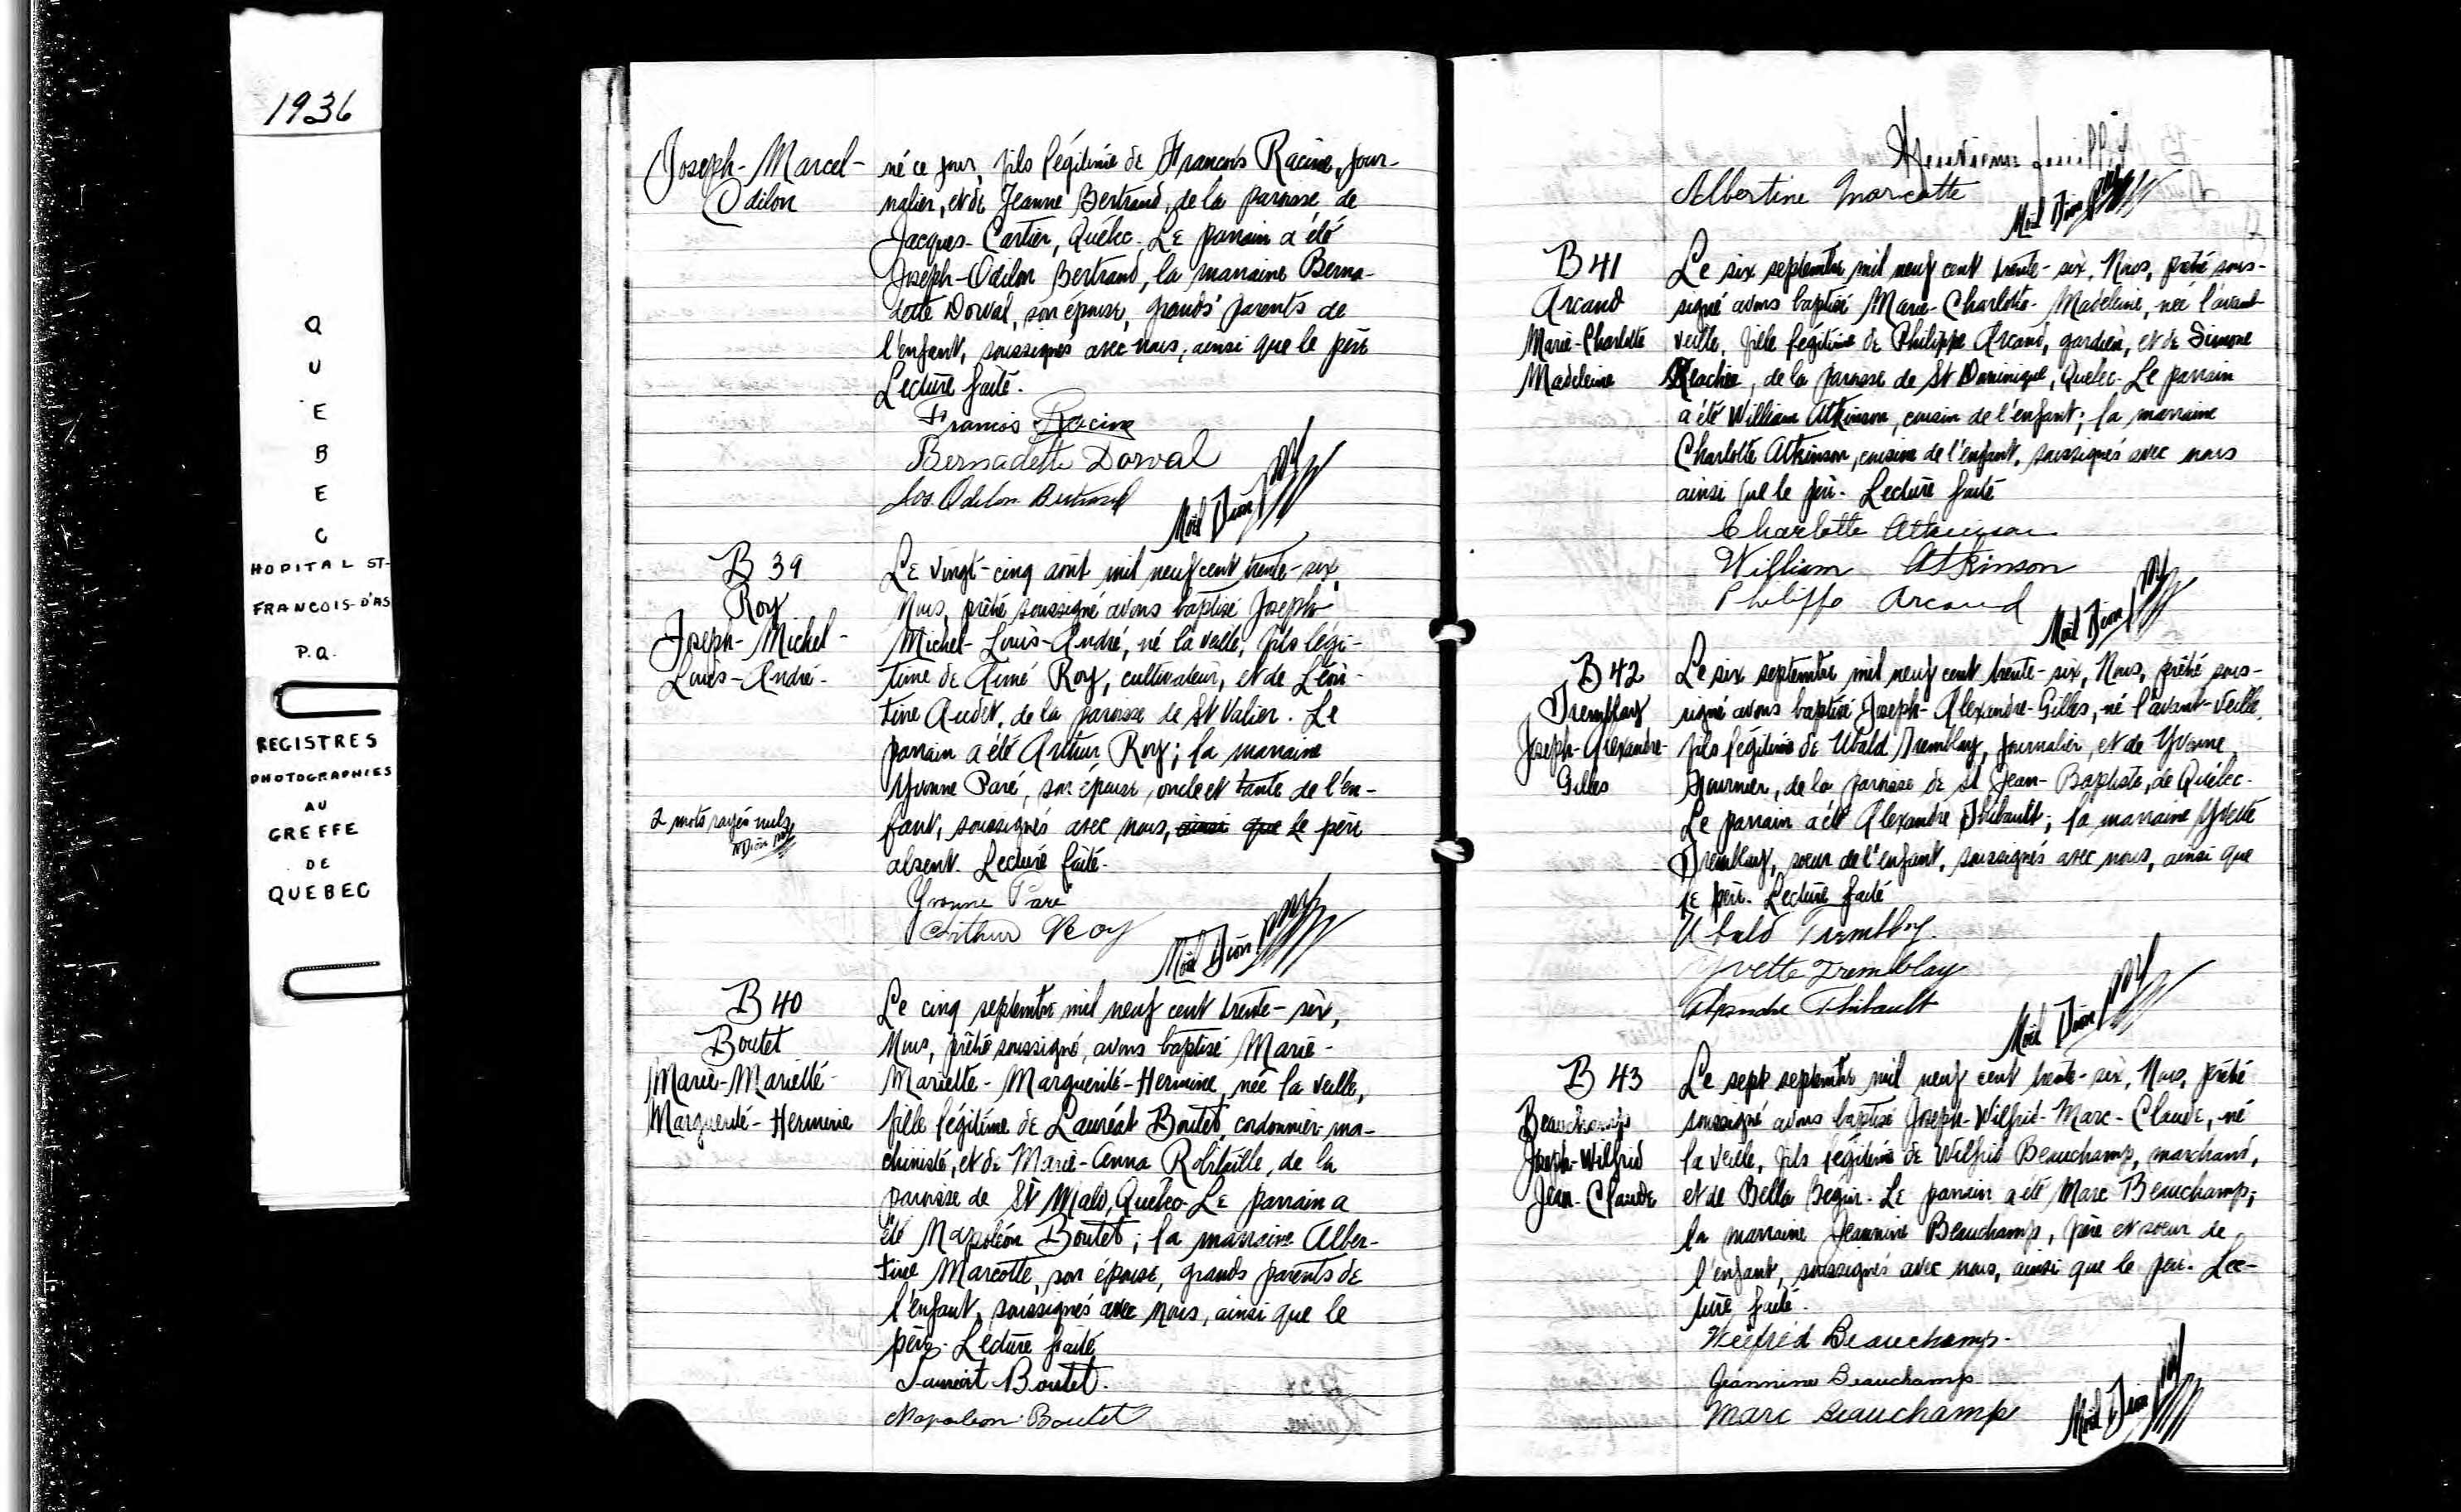 1936
Q
U
E
B
E
C
HOPITAL ST-
FRANCOIS-D'AS
P.Q.
REGISTRES
PHOTOGRAPHIES
AU
GREFFE
DE
QUEBEC
Joseph-Marcel-
Odilon
né ce jour, fils légitime de Francois Racine, jour-
nalier, et de Jeanne Bertrand, de la paroisse de
Jacques-Cartier, Québec. Le parrain a été
Joseph-Odilon Bertrand, la marraine Berna-
dette Dorval, son épouse, grands parents de
l'enfant, soussignés avec nous, ainsi que le père
Lecture faite.
Francois Racine
Bernadette Dorval
Jos Odilon Bertrand
Noël Dion ptre
B 39
Roy
Joseph-Michel-
Louis-André-
Le vingt-cinq août mil neuf cent trente-six,
Nous, prêtre soussigné avons baptisé Joseph-
Michel-Louis-André, né la veille, fils légi-
time de Aimé Roy, cultivateur, et de Léon-
tine Audet, de la paroisse de St Valier. Le
parrain a été Arthur Roy; la marraine
Yvonne Paré, son épouse, oncle et tante de l'en-
fant, soussignés avec nous, ainsi que le père
absent. Lecture faite.
2 mots rayés nuls
N Dion ptre
Yvonne Paré
Arthur Roy
Noël Dion ptre
B 40
Boutet
Marie-Mariette
Marguerite-Hermine
Le cinq septembre mil neuf cent trente-six,
Nous, prêtre soussigné, avons baptisé Marie-
Mariette-Marguerite-Hermine, née la veille,
fille légitime de Lauréat Boutet, cordonnier-ma-
chiniste, et de Marie-Anna Robitaille, de la
paroisse de St Malo, Québec. Le parrain a
été Napoléon Boutet; la marraine Alber-
tine Marcotte, son épouse, grands parents de
l'enfant, soussignés avec nous, ainsi que le
père. Lecture faite
Lauréat Boutet.
Napoleon Boutet
feuillet
Albertine Marcotte
Noël Dion ptre
B 41
Arcand
Marie-Charlotte
Madeleine
Le six septembre mil neuf cent trente-six, Nous, prêtre sous-
signé avons baptisé Marie-Charlotte-Madeleine, née l'avant
veille, fille légitime de Philippe Arcand, gardien, et de Simone
de la paroisse de St Dominique, Québec. Le parrain
a été William Atkinson, cousin de l'enfant; la marraine
Charlotte Atkinson, cousine de l'enfant, soussignés avec nous
ainsi que le père. Lecture faite
Charlotte Atkinson
William Atkinson
Philippe Arcand
Noël Dion ptre
B 42
Tremblay
Joseph-Alexandre-
Gilles
Le six septembre mil neuf cent trente-six, Nous, prêtre sous-
signé avons baptisé Joseph-Alexandre-Gilles, né l'avant-veille,
fils légitime de Ubald Tremblay, journalier, et de Yvonne
Fournier, de la paroisse de St Jean-Baptiste, de Québec.
Le parrain a été Alexandre Thibault; la marraine Yvette
Tremblay, soeur de l'enfant, soussignés avec nous, ainsi que
le père. Lecture faite
Ubald Tremblay.
Yvette Tremblay
Alexandre Thibault
Noël Dion ptre
B 43
Beauchamp
Joseph-Wilfrid
Jean-Claude
Le sept septembre mil neuf cent trente-six, Nous, prêtre
soussigné avons baptisé Joseph-Wilfrid-Marc-Claude, né
la veille, fils légitime de Wilfrid Beauchamp, marchand,
et de Bella Begin. Le parrain a été Marc Beauchamp;
la marraine Jeannine Beauchamp, frère et soeur de
l'enfant, soussignés avec nous, ainsi que le père. Lec-
ture faite.
Wilfrid Beauchamp.
Jeannine Beauchamp
Marc Beauchamp
Noël Dion ptre